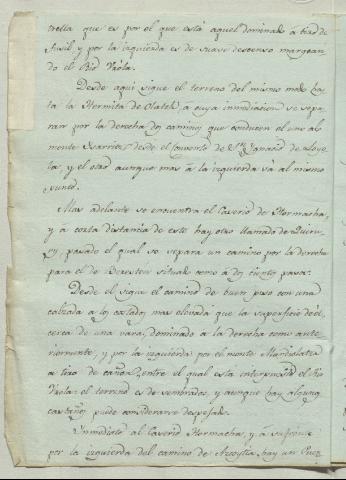 trella que es por el que está aquel dominado á tiro de
fusil y por la izquierda es de suave descenso margean-
do el Rio Urola.
Desde aqui sigue el terreno del mismo modo has-
ta la Hermita de Olatz, á cuya inmediacion se sepa-
ran por la derecha dos caminos que conducen el uno al
monte Izarraitz desde el Convento de Sn. Ygnacio de Loyo-
la, y el otro aunque mas á la izquierda vá al mismo
punto.
Mas adelante se encuentra el Caserio de Hormaechea,
y á corta distancia de este hay otro llamado de
pasado el qual se separa un camino por la derecha
para el de situado como á dos cientos pasos.
Desde él sigue el camino de buen piso con una
calzada á los costados mas elevada que la superficie de él
cerca de una vara, dominado á la derecha como ante-
riormente, y por la izquierda por el monte
a tiro de cañon, entre el qual está interpuesto el Rio
Urola: el terreno es de sembrados, y aunque hay algunos
castaños puede considerarse despejado.
Inmediato al Caserio Hormaechea, y á
por la izquierda del camino de Azcoytia, hay un Puen-